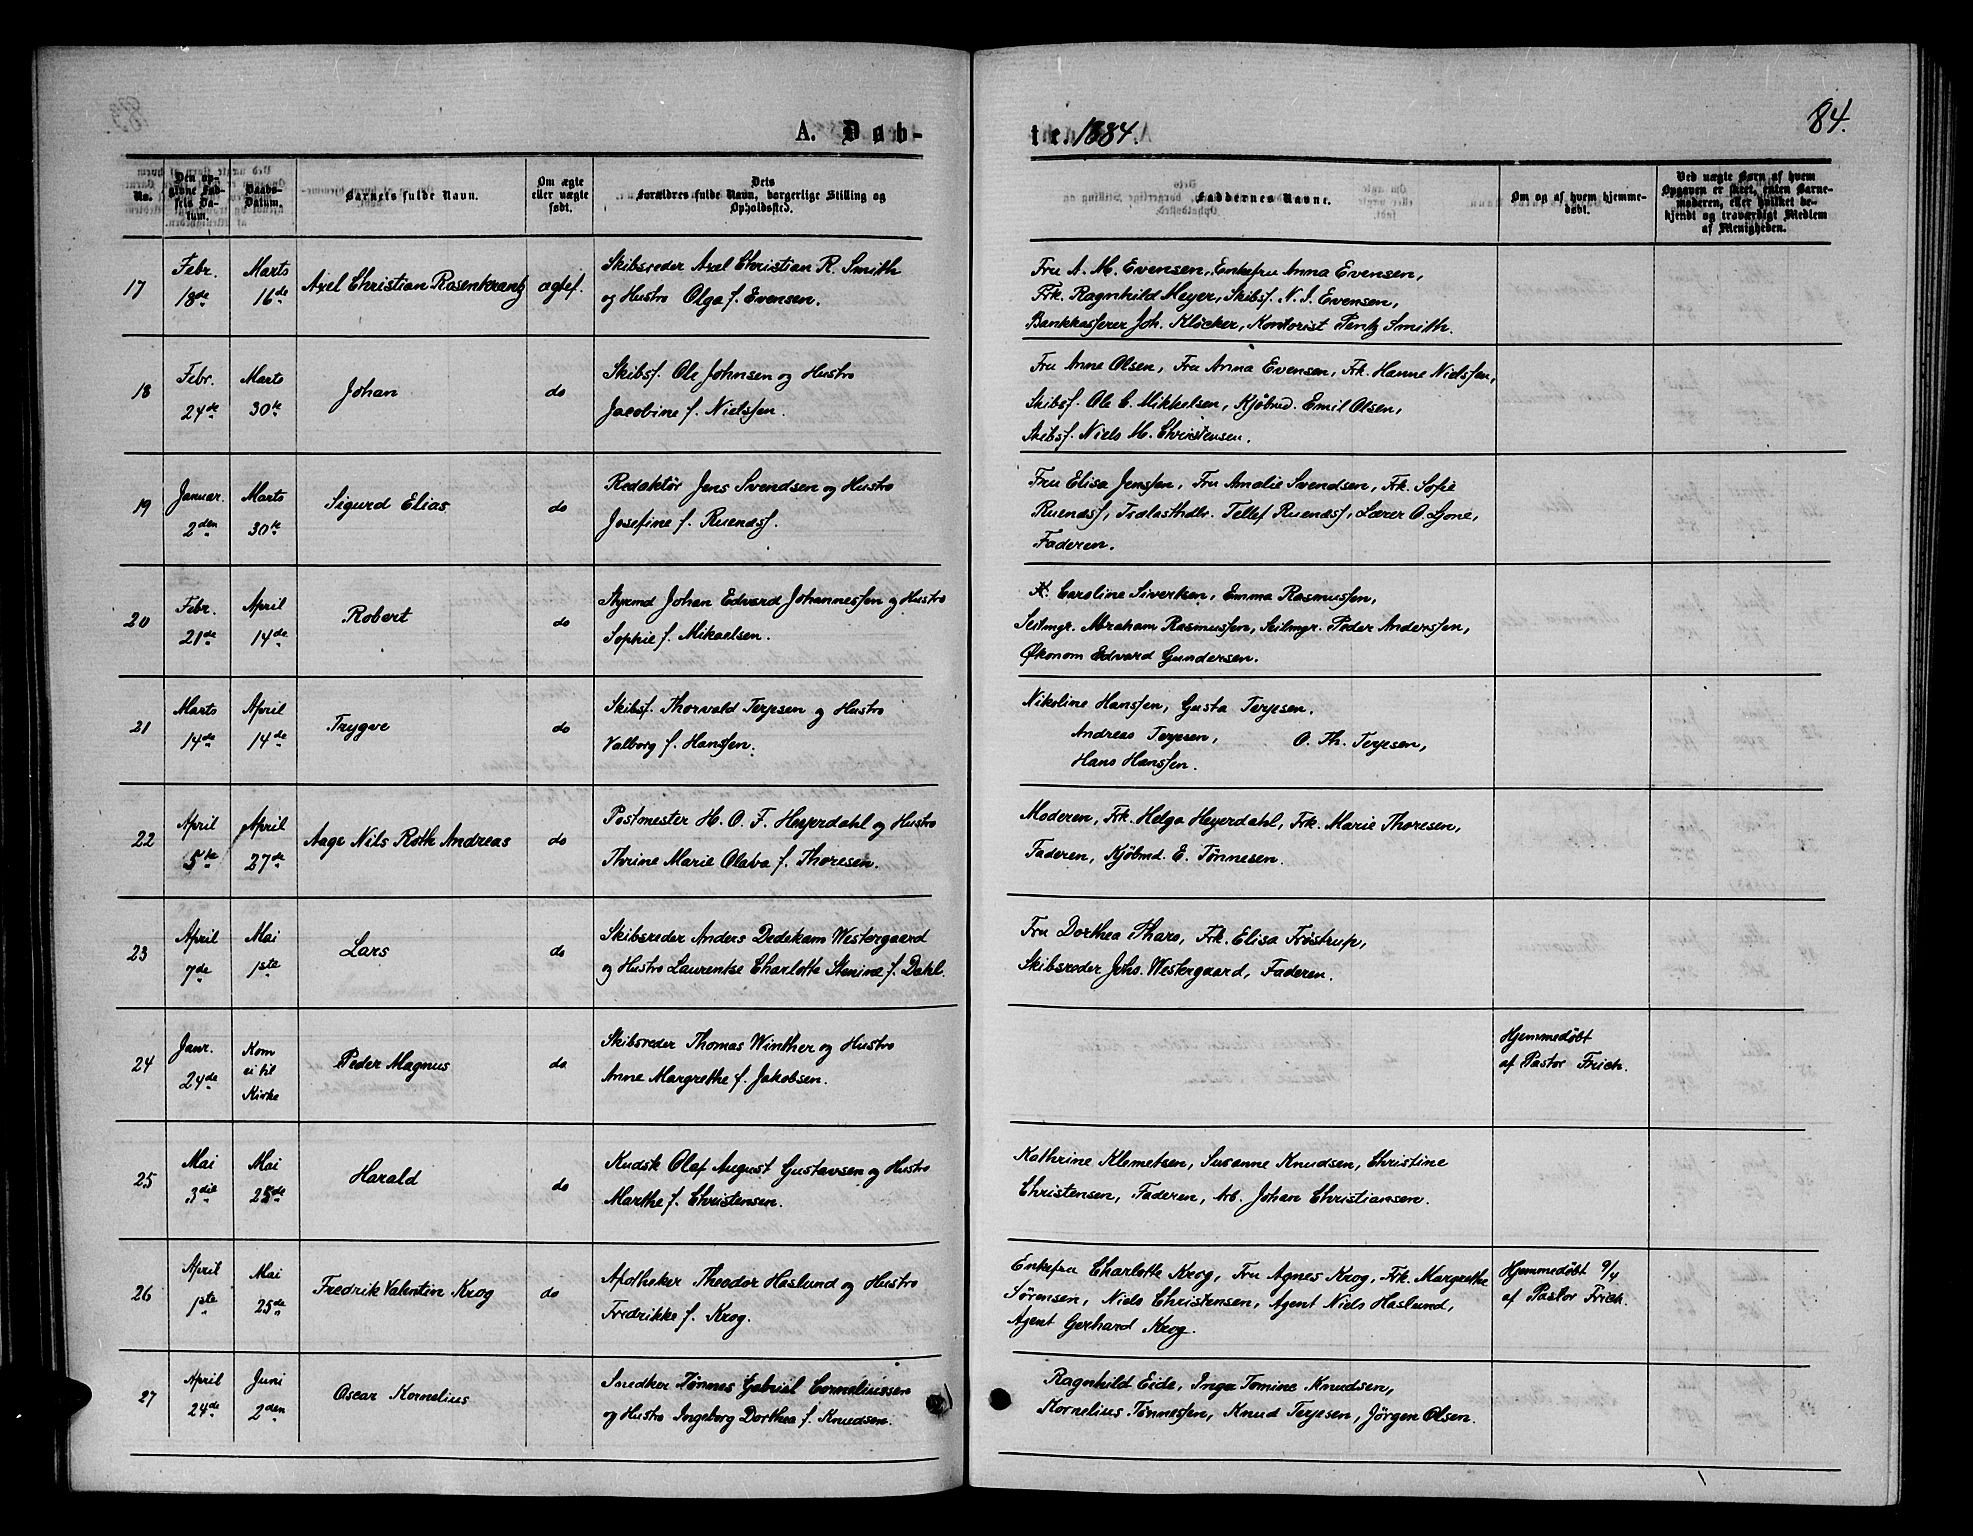 A. Døb-
te. 1884.
84.
No.
Den opgivne Fødsels Datum.
Daabs-Datum.
Barnets fulde Navn.
Om ægte eller uægte født.
Dets Forældres fulde Navn, borgerlige Stilling og Opholdssted.
Faddernes Navne.
Om og af hvem hjemmedøbt.
Ved uægte Børn af hvem Opgaven er skeet, enten Barnemoderen, eller hvilket bekjendt og troværdigt Medlem af Menigheden.
17
Febr. 18de
Marts 16de
Axel Christian Rosenkrantz
ægtef.
Skibsreder Axel Christian R. Smith
og Hustro Olga f. Evensen.
Fru A. M. Evensen, Enkefru Anna Evensen,
Frk. Ragnhild Meyer, Skibsf. N. S. Evensen,
Bankkasserer Joh. Kløcker, Kontorist Tentz Smith.
18
Febr. 24de
Marts 30te
Johan
do
Skibsf. Ole Johnsen og Hustro
Jacobine f. Nielssen.
Fru Anne Olsen, Fru Anna Evensen, Frk. Hanne Nielssen,
Skibsf. Ole C. Mikkelsen, Kjøbmd. Emil Olsen,
Skibsf. Niels M. Christensen.
19
Januar. 2den
Marts 30te
Sigurd Elias
do
Redaktør Jens Svendsen og Hustro
Josefine f. Ruenæsf.
Fru Elisa Jenssen, Fru Amalie Svendsen, Frk. Sofie
Ruenæsf, Trælasthdlr. Tellef Ruenæsf, Lærer O. Ljone,
Faderen.
20
Febr. 21de
April 14de
Robert
do
Styrmd Johan Edvard Johannessen og Hustro
Sophie f. Mikaelsen.
Caroline Sivertsen, Emma Rasmussen,
Seilmgr. Abraham Rasmussen, Seilmgr. Peder Anderssen,
Økonom Edvard Gundersen.
21
Marts 14de
April 14de
Trygve
do
Skibsf. Thorvald Terjesen og Hustro
Valborg f. Hanssen.
Nikoline Hanssen, Gusta Terjesen.
Andreas Terjesen, O. Th. Terjesen,
Hans Hanssen.
22
April 5te
April 27de
Aage Nils Roth Andreas
do
Postmester H. O. F. Heyerdahl og Hustro
Thrine Marie Olava f. Thoresen.
Moderen, Frk. Helga Heyerdahl, Frk. Marie Thoresen,
Faderen, Kjøbmd. E. Tønnesen.
23
April 7de
Mai 1ste
Lars
do
Skibsreder Anders Dedekam Westergaard
og Hustro Laurentse Charlotte Stenine f. Dahl.
Fru Dorthea Thare, Frk. Elisa Trøstrup,
Skibsreder Johs. Westergaard, Faderen.
24
Janr. 24de
Kom ei til Kirke
Peder Magnus
do
Skibsreder Thomas Winther og Hustro
Anne Margrethe f. Jakobsen.
Hjemmedøbt
af Pastor Frich.
25
Mai 3die
Mai 25de
Harald
do
Kudsk Olaf August Gustavsen og Hustro
Marthe f. Christensen.
Kathrine Klemetsen, Susanne Knudsen, Christine
Christensen, Faderen, Arb. Johan Christiansen.
26
April 1ste
Mai 25de
Fredrik Valentin Krog
do
Apotheker Theodor Haslund og Hustro
Fredrikke f. Krog.
Enkefru Charlotte Krog, Fru Agnes Krog, Frk. Margrethe
Sørensen, Niels Christensen, Agent Niels Haslund,
Agent Gerhard Krog.
Hjemmedøbt 9/4
af Pastor Frich.
27
April 24de
Juni 2den
Oscar Kornelius
Snedker Tønnes Gabriel Corneliussen
og Hustro Ingeborg Dorthea f. Knudsen.
Ragnhild Eide, Inga Tomine Knudsen,
Kornelius Tønnessen, Knud Terjesen, Jörgen Olsen.